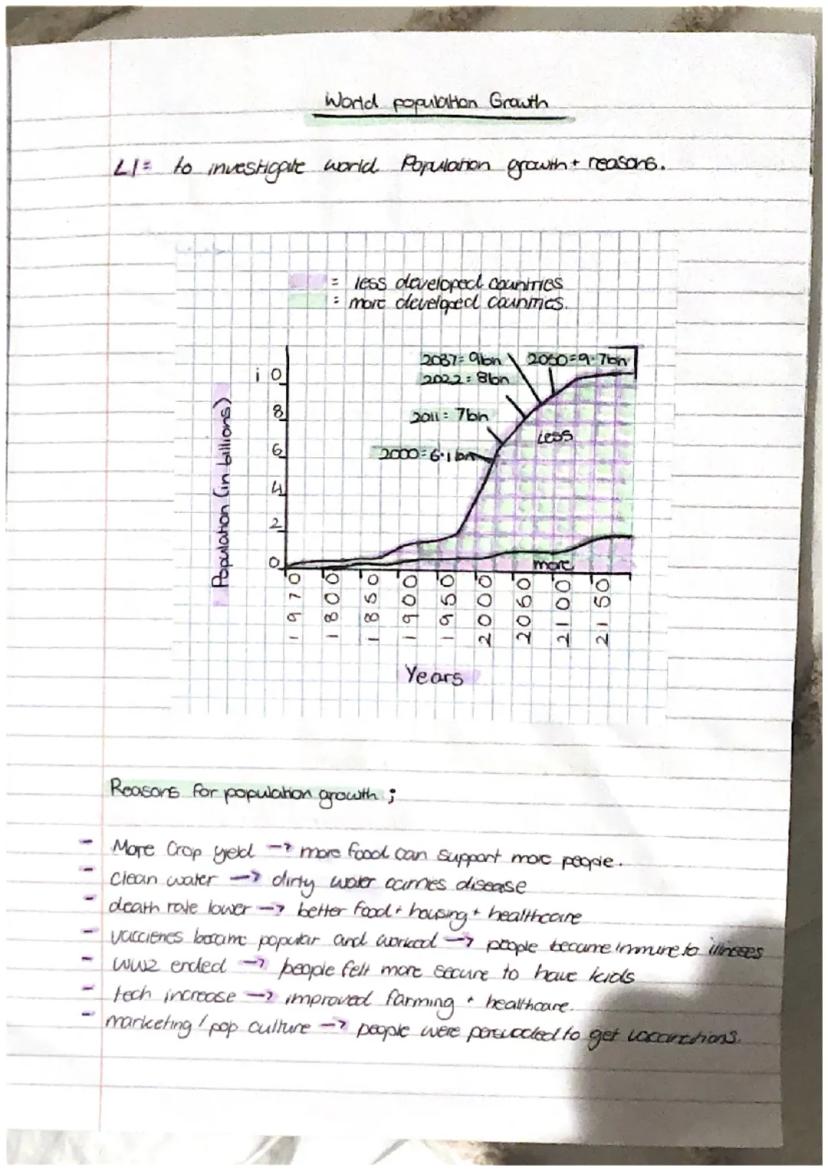 World population Growth
LI= to investigate world Population growth + reasons.
= less developed countries
= more developed countries.
2087= 9bn
2050=9.7bn
2022= 8bn
2011= 7bn
2000=6.1bn
Less
more
Population (in billions)
10
8
6
4
2
0
1970
1800
1850
1900
1950
2000
2060
2100
2150
Years
Reasons for population growth ;
- More Crop yeld → more food can support more people.
- clean water → dirty water carries disease
- death rate lower → better food + housing + healthcare
- vaccienes became popular and worked → people became immune to illnesses
- WW2 ended → people felt more secure to have kids
- tech increase → improved farming + healthcare.
- marketing / pop culture → people were persuaded to get vaccinations.